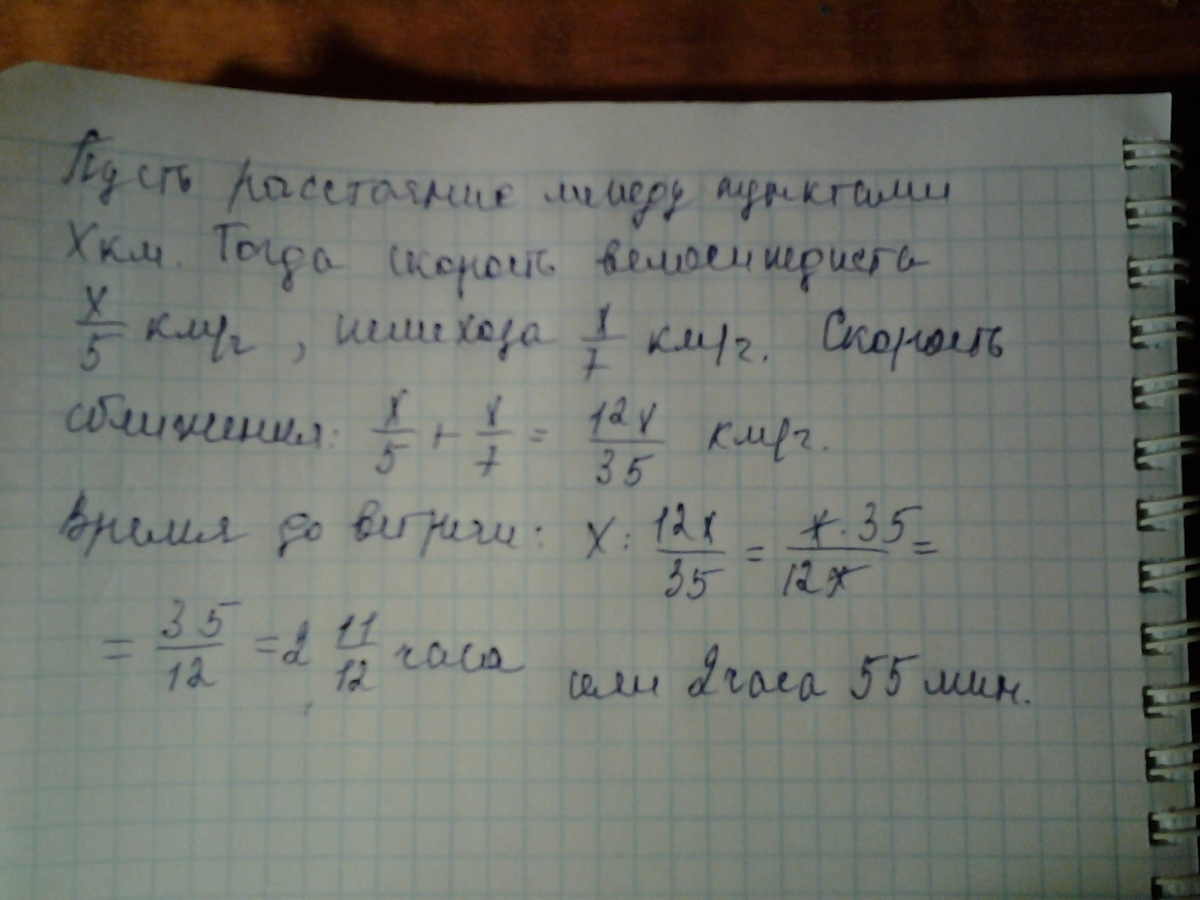 Пусть расстояние между пунктами
X км. Тогда скорость велосипедиста
x/5 км/г, пешехода x/7 км/г. Скорость
сближения: x/5 + x/7 = 12x/35 км/г.
Время до встречи: x : 12x/35 = x·35/12x =
= 35/12 = 2 11/12 часа или 2 часа 55 мин.